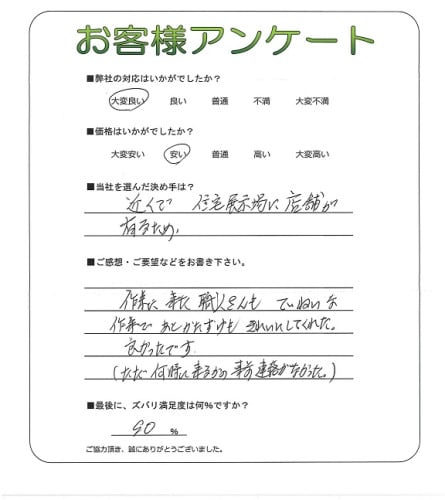 お客様アンケート
■弊社の対応はいかがでしたか?
大変良い 良い 普通 不満 大変不満
■価格はいかがでしたか?
大変安い 安い 普通 高い 大変高い
■当社を選んだ決め手は?
近くで 住宅展示場に店舗が
有るため。
■ご感想・ご要望などをお書き下さい。
作業に来た職人さんも ていねいな
作業で あとかたずけも きれいにしてくれた。
良かったです
(ただ何時に来るかの事前連絡がなかった。)
■最後に、ズバリ満足度は何%ですか?
90 %
ご協力頂き、誠にありがとうございました。